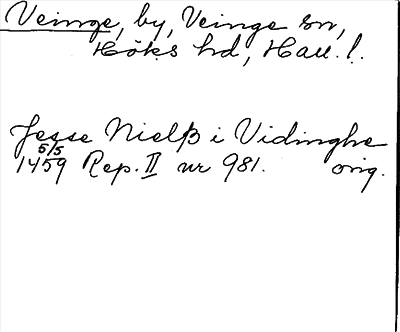 Veinge, by, Veinge sn,
Höks hd, Hall. l.
Jesse Nielß i Vidinghe
5/5
1459 Rep. II nr 981. orig.